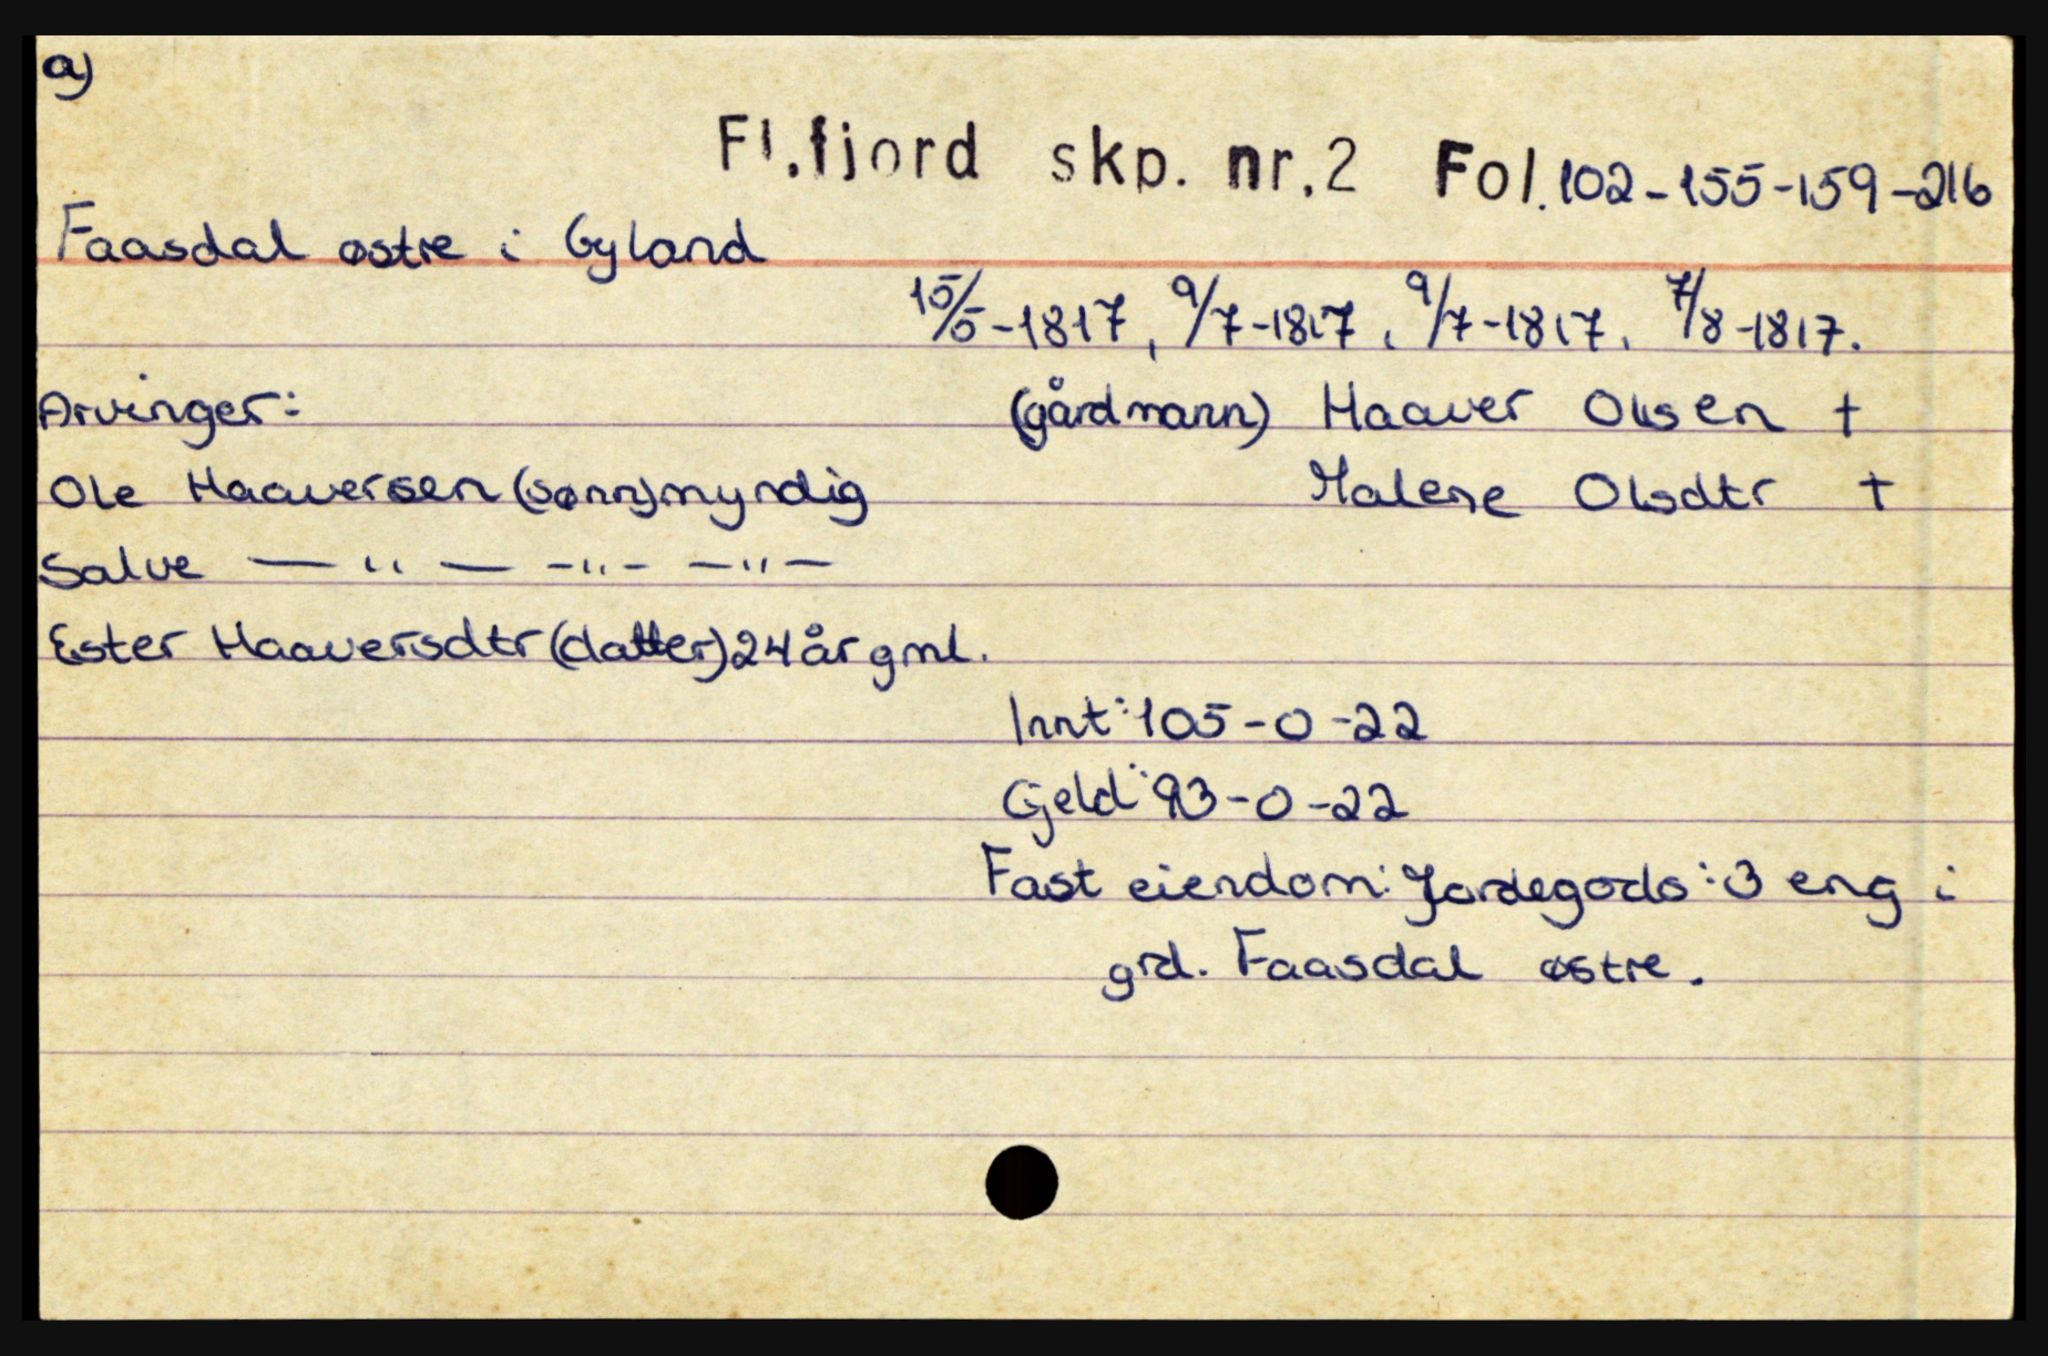 a)
Fl.fjord skp. nr.2 Fol.102-155-159-216
Faasdal østre i Gyland
15/5-1817, 9/7-1817, 9/7-1817, 7/8-1817.
Arvinger: (gårdmann) Haaver Olsen †
Ole Haaversen (sønn) myndig Malene Olsdtr †
Salve — " — -"- -"-
Ester Haaversdtr (datter) 24 år gml.
Innt: 105-0-22
Gjeld: 93-0-22
Fast eiendom: Jordegods: 3 eng i
grd. Faasdal østre.